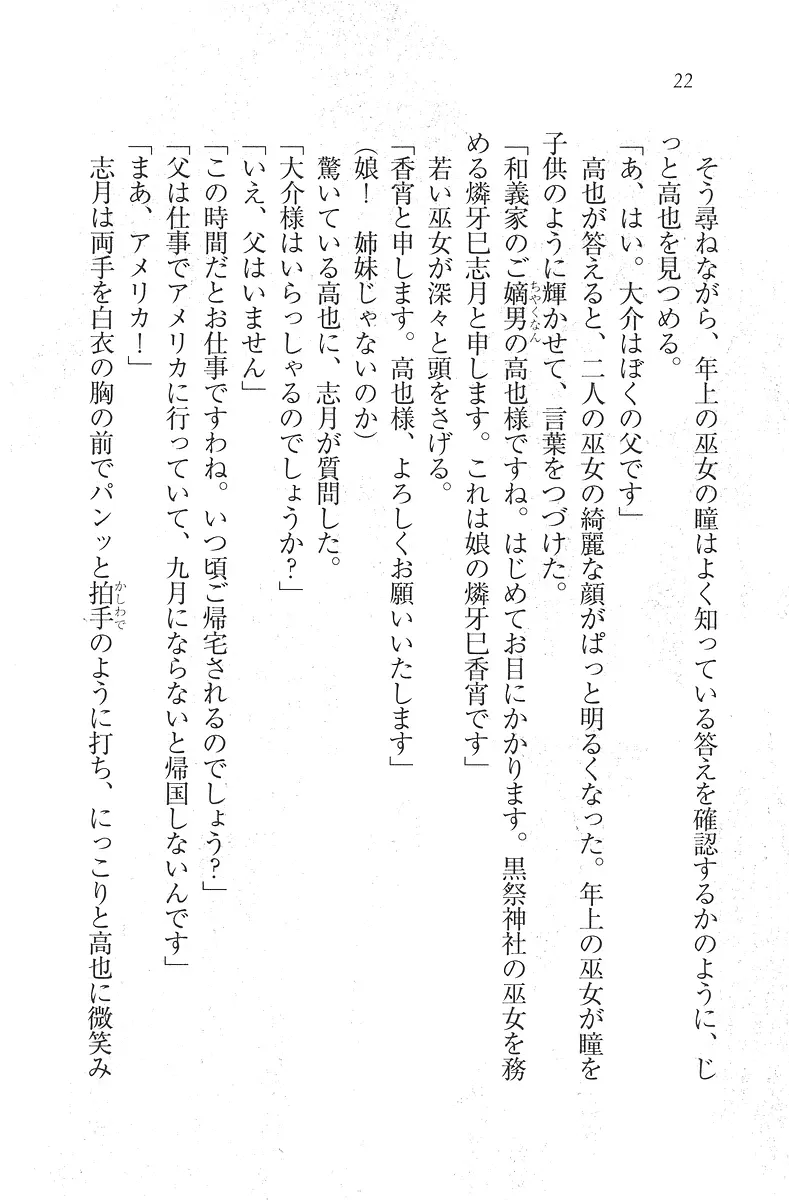 22
　そう尋ねながら、年上の巫女の瞳はよく知っている答えを確認するかのように、じ
っと高也を見つめる。
「あ、はい。大介はぼくの父です」
　高也が答えると、二人の巫女の綺麗な顔がぱっと明るくなった。年上の巫女が瞳を
子供のように輝かせて、言葉をつづけた。
「和義家のご嫡男の高也様ですね。はじめてお目にかかります。黒祭神社の巫女を務
ちゃくなん
める燐牙巳志月と申します。これは娘の燐牙巳香宵です」
　若い巫女が深々と頭をさげる。
「香宵と申します。高也様、よろしくお願いいたします」
（娘！　姉妹じゃないのか）
　驚いている高也に、志月が質問した。
「大介様はいらっしゃるのでしょうか？」
「いえ、父はいません」
「この時間だとお仕事ですわね。いつ頃ご帰宅されるのでしょう？」
「父は仕事でアメリカに行っていて、九月にならないと帰国しないんです」
「まあ、アメリカ！」
　志月は両手を白衣の胸の前でパンッと拍手のように打ち、にっこりと高也に微笑み
かしわで